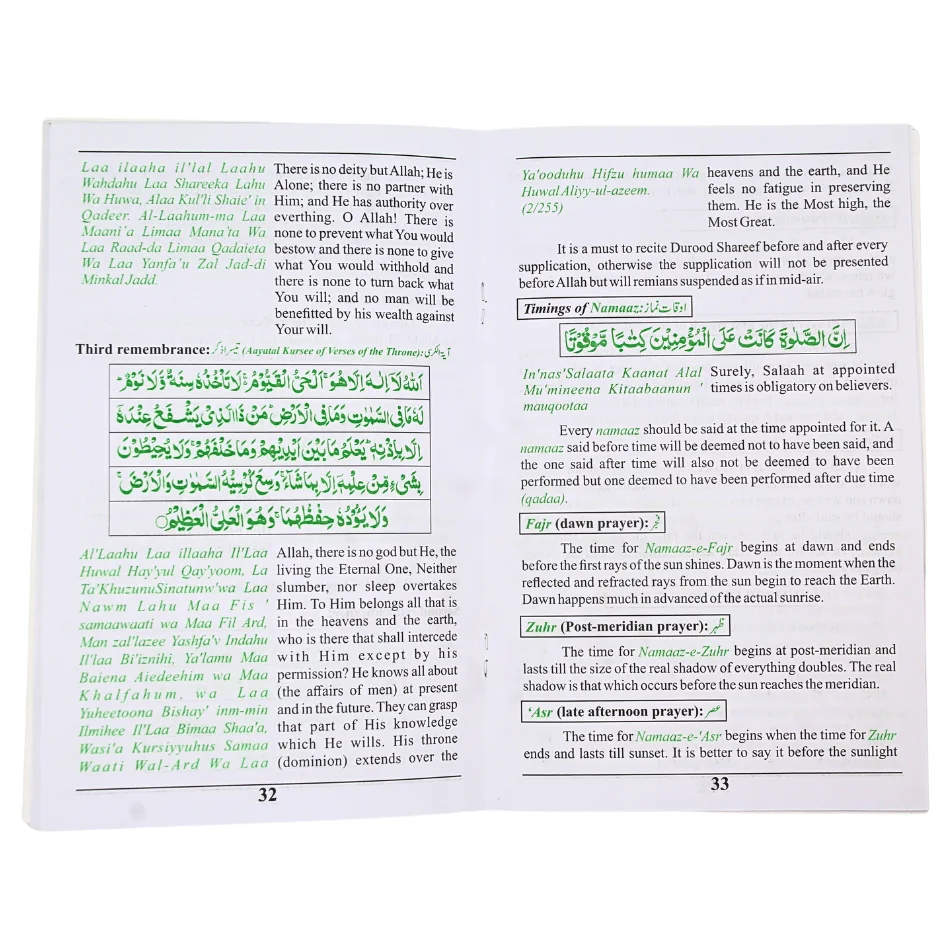 Laa ilaaha il'lal Laahu
Wahdahu Laa Shareeka Lahu
Wa Huwa, Alaa Kul'li Shaie' in
Qadeer. Al-Laahum-ma Laa
Maani'a Limaa Mana'ta Wa
Laa Raad-da Limaa Qadaieta
Wa Laa Yanfa'u Zal Jad-di
Minkal Jadd.
There is no deity but Allah; He is
Alone; there is no partner with
Him; and He has authority over
everthing. O Allah! There is
none to prevent what You would
bestow and there is none to give
what You would withhold and
there is none to turn back what
You will; and no man will be
benefitted by his wealth against
Your will.
Third remembrance: تیسرا ذکر (Aayatal Kursee of Verses of the Throne): آیۃ الکرسی
اَللهُ لَآ اِلٰهَ اِلَّا هُوَ ۚ اَلْحَيُّ الْقَيُّوْمُ ۚ لَا تَاْخُذُهٗ سِنَةٌ وَّلَا نَوْمٌ ؕ
لَهٗ مَا فِی السَّمٰوٰتِ وَمَا فِی الْاَرْضِ ؕ مَنْ ذَا الَّذِیْ یَشْفَعُ عِنْدَهٗۤ
اِلَّا بِاِذْنِهٖ ؕ یَعْلَمُ مَا بَیْنَ اَیْدِیْهِمْ وَمَا خَلْفَهُمْ ۚ وَلَا یُحِیْطُوْنَ
بِشَیْءٍ مِّنْ عِلْمِهٖۤ اِلَّا بِمَا شَآءَ ۚ وَسِعَ کُرْسِیُّهُ السَّمٰوٰتِ وَالْاَرْضَ ۚ
وَلَا یَؤُدُهٗ حِفْظُهُمَا ۚ وَهُوَ الْعَلِیُّ الْعَظِیْمُ
Al'Laahu Laa illaaha Il'Laa
Huwal Hay'yul Qay'yoom, La
Ta'KhuzunuSinatunw'wa Laa
Nawm Lahu Maa Fis '
samaawaati wa Maa Fil Ard,
Man zal'lazee Yashfa'v Indahu
Il'laa Bi'iznihi, Ya'lamu Maa
Baiena Aiedeehim wa Maa
Khalfahum, wa Laa
Yuheetoona Bishay' inm-min
Ilmihee Il'Laa Bimaa Shaa'a,
Wasi'a Kursiyyuhus Samaa
Waati Wal-Ard Wa Laa
Allah, there is no god but He, the
living the Eternal One, Neither
slumber, nor sleep overtakes
Him. To Him belongs all that is
in the heavens and the earth,
who is there that shall intercede
with Him except by his
permission? He knows all about
(the affairs of men) at present
and in the future. They can grasp
that part of His knowledge
which He wills. His throne
(dominion) extends over the
32
Ya'ooduhu Hifzu humaa Wa
Huwal Aliyy-ul-azeem.
(2/255)
heavens and the earth, and He
feels no fatigue in preserving
them. He is the Most high, the
Most Great.
It is a must to recite Durood Shareef before and after every
supplication, otherwise the supplication will not be presented
before Allah but will remians suspended as if in mid-air.
Timings of Namaaz: اوقات نماز
اِنَّ الصَّلٰوةَ كَانَتْ عَلَى الْمُؤْمِنِيْنَ كِتٰبًا مَّوْقُوْتًا
In'nas'Salaata Kaanat Alal
Mu'mineena Kitaabaanun '
mauqootaa
Surely, Salaah at appointed
times is obligatory on believers.
Every namaaz should be said at the time appointed for it. A
namaaz said before time will be deemed not to have been said, and
the one said after time will also not be deemed to have been
performed but one deemed to have been performed after due time
(qadaa).
Fajr (dawn prayer): فجر
The time for Namaaz-e-Fajr begins at dawn and ends
before the first rays of the sun shines. Dawn is the moment when the
reflected and refracted rays from the sun begin to reach the Earth.
Dawn happens much in advanced of the actual sunrise.
Zuhr (Post-meridian prayer): ظہر
The time for Namaaz-e-Zuhr begins at post-meridian and
lasts till the size of the real shadow of everything doubles. The real
shadow is that which occurs before the sun reaches the meridian.
‘Asr (late afternoon prayer): عصر
The time for Namaaz-e-'Asr begins when the time for Zuhr
ends and lasts till sunset. It is better to say it before the sunlight
33